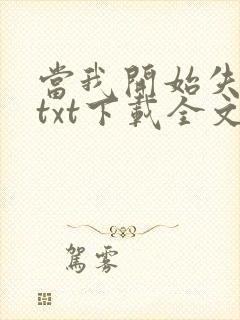 當我開始失
txt下載全文
駕霧